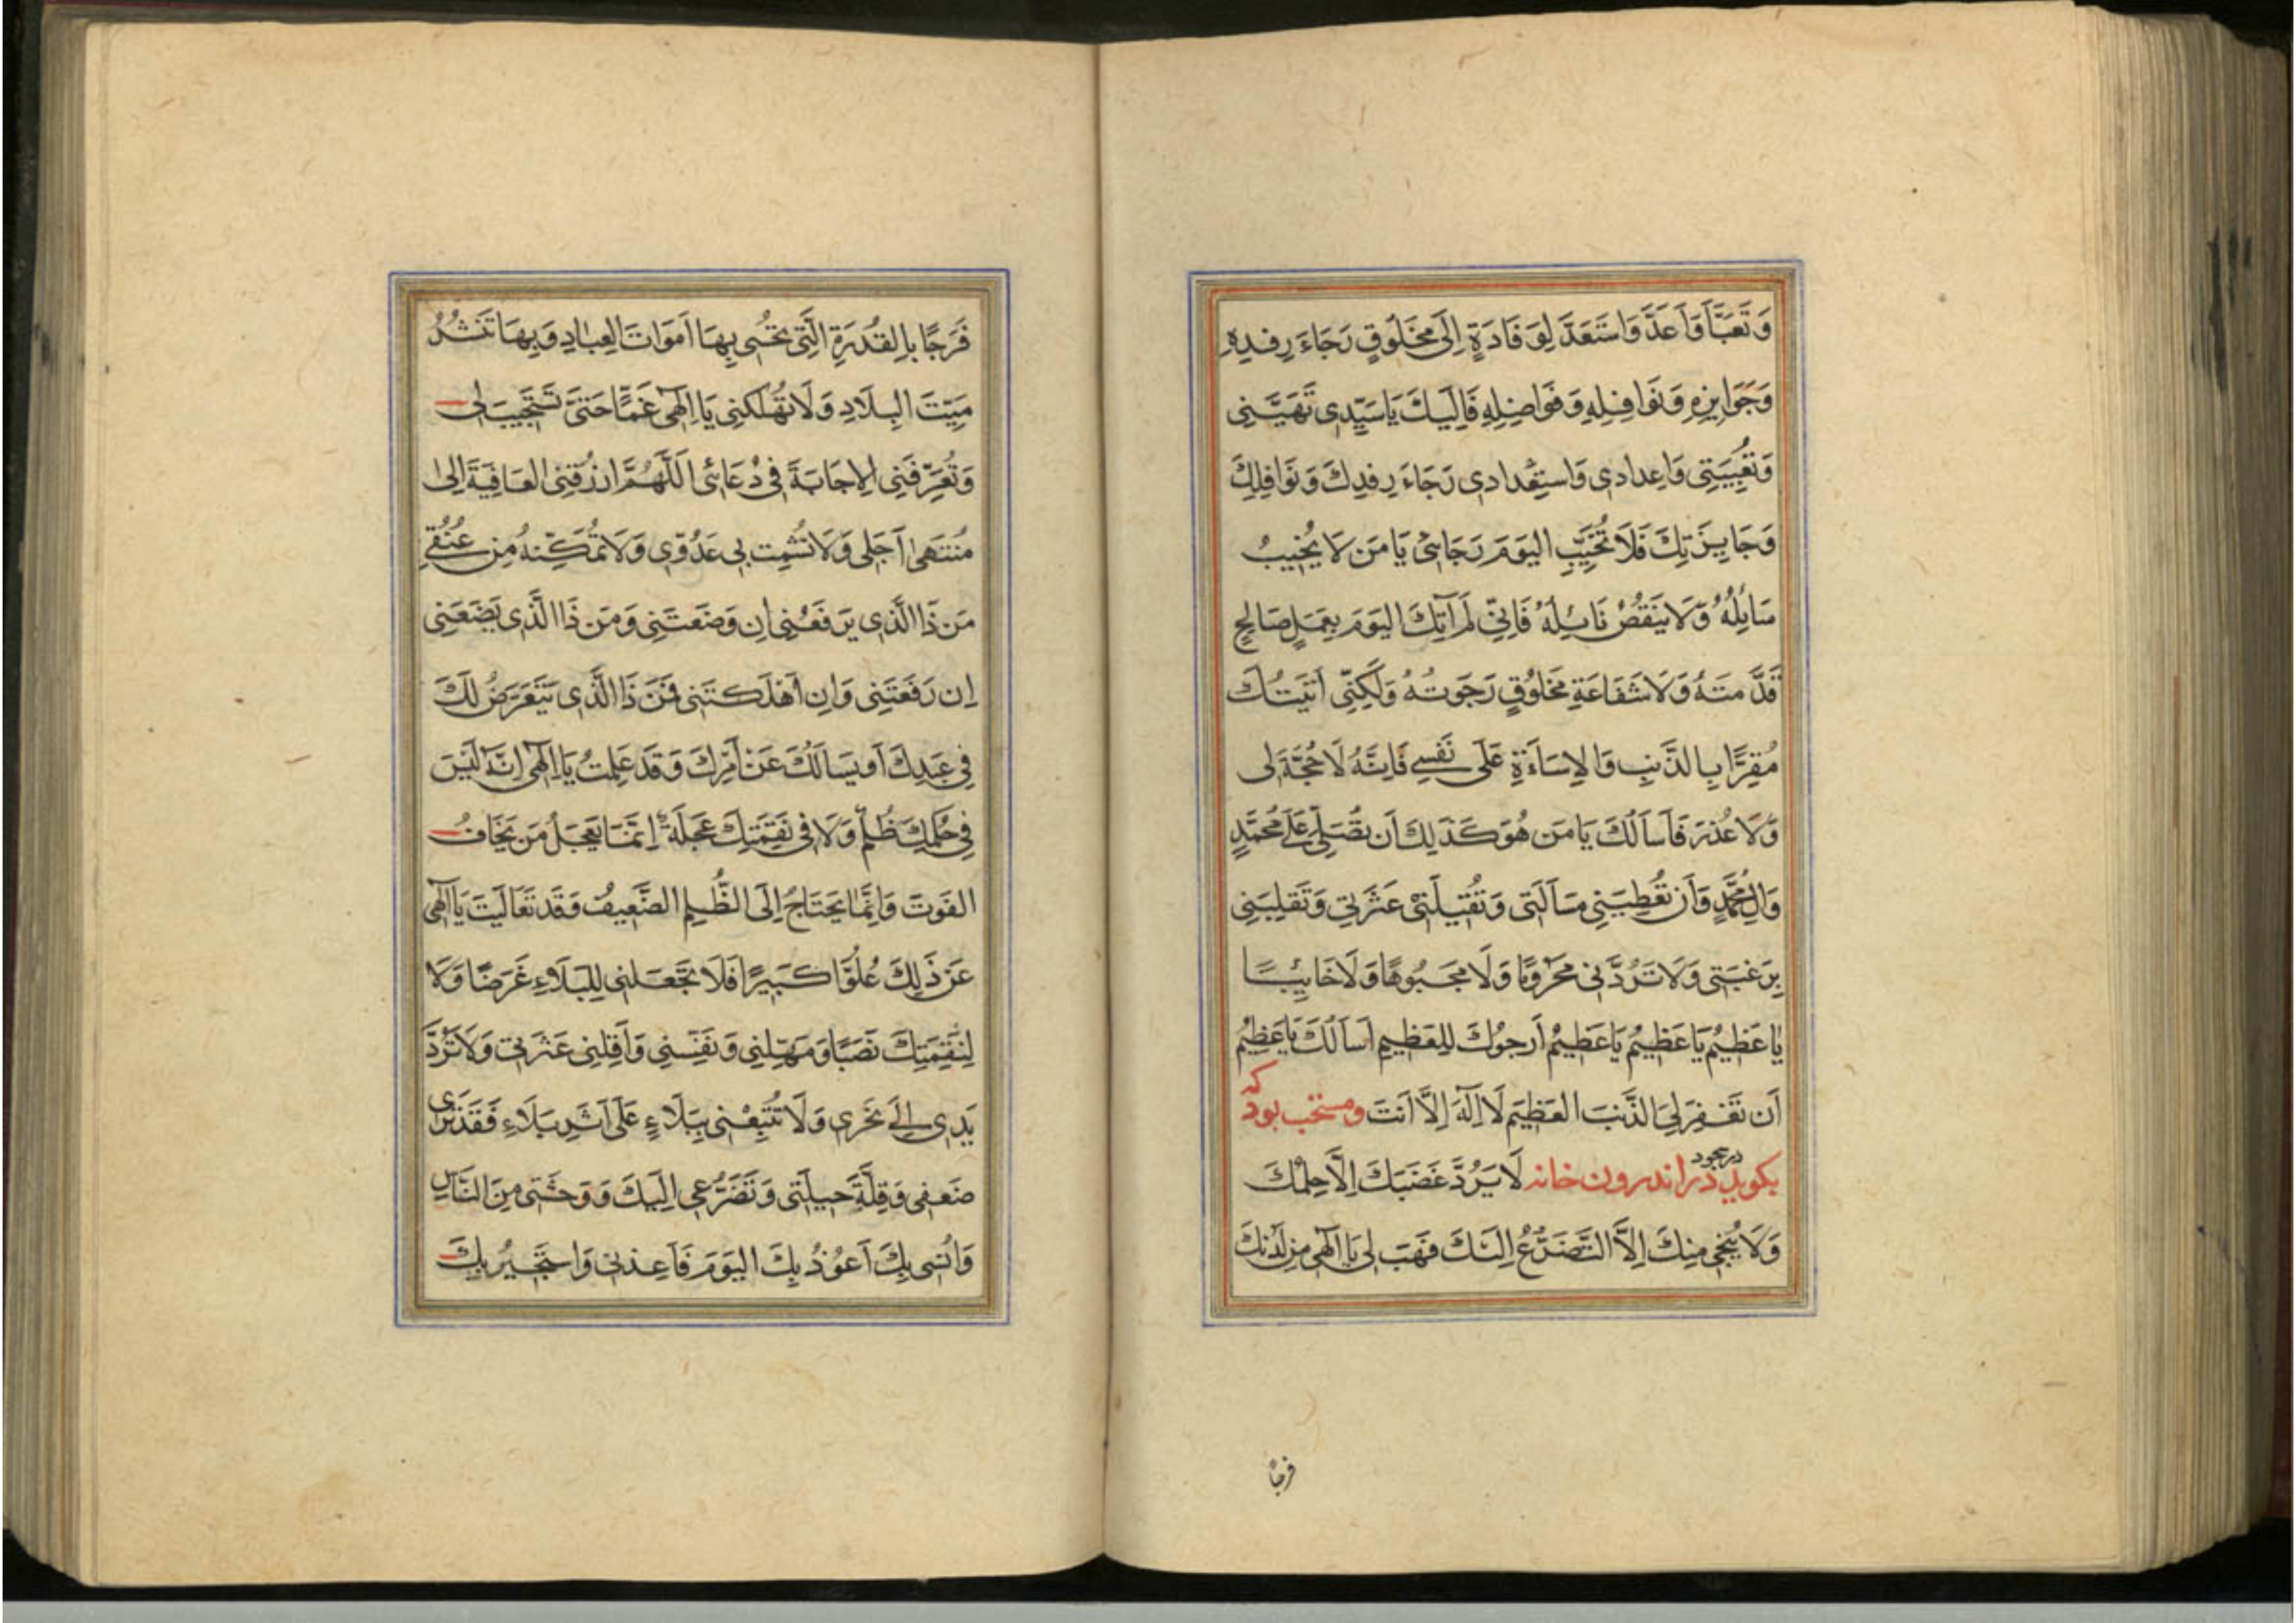 وَتَعَبَّأَ وَاَعَدَّ وَاسْتَعَدَّ لِوَفَادَةٍ اِلَى مَخْلُوقٍ رَجَاءَ رِفدِهِ
وَجَوَايِزِهِ وَنَوَافِلِهِ وَفَوَاضِلِهِ فَاِلَيكَ يَا سَيِّدِى تَهيِئَتِى
وَتَعْبِيَتِى وَاِعدادى وَاستِعْدادى رَجَاءَ رِفدِكَ وَنَوَافِلِكَ
وَجَايِزَتِكَ فَلَا تُخَيِّبِ اليَومَ رَجَائِى يَا مَن لَا يُخَيِّبُ
سَائِلُهُ وَلَا يَنقُصُ نَائِلُهُ فَاِنّى لَم آتِكَ اليَومَ بِعَمَلٍ صَالِحٍ
قَدَّمتَهُ وَلَا شَفَاعَةِ مَخلُوقٍ رَجَوتُهُ وَلَكِنِّى اَتَيتُكَ
مُقِرًّا بِالذَّنبِ وَالاِسَاءَةِ عَلَى نَفسِى فَاِنَّهُ لَا حُجَّةَ لِى
وَلَا عُذرَ فَاَسأَلُكَ يَا مَن هُوَ كَذَلِكَ اَن تُصَلِّىَ عَلى مُحَمَّدٍ
وَآلِ مُحَمَّدٍ وَاَن تُعطِيَنِى مَسأَلَتِى وَتُقيلَنِى عَثرَتِى وَتَقلِبَنِى
بِرَغبَتِى وَلَا تَرُدَّنِى مَحرُومًا وَلَا مَجبُوهًا وَلَا خَايِبًا
يَا عَظِيمُ يَا عَظِيمُ يَا عَظِيمُ اَرجُوكَ لِلعَظِيمِ اَسأَلُكَ يَا عَظِيمُ
اَن تَغفِرَ لِىَ الذَّنبَ العَظِيمَ لَا اِلَهَ اِلَّا اَنتَ ومستحب بود كه
بكويد در سجود در اندرون خانه لَا يَرُدُّ غَضَبَكَ اِلَّا حِلمُكَ
وَلَا يُنجِى مِنكَ اِلَّا التَّضَرُّعُ اِلَيكَ فَهَب لِى يَا اِلَهِى مِن لَدُنكَ
فرجًا
فَرَجًا بِالقُدرَةِ الَّتِى تُحيِى بِهَا اَموَاتَ العِبَادِ وَبِهَا تَنشُرُ
مَيِّتَ البِلَادِ وَلَا تُهلِكنِى يَا اِلَهِى غَمًّا حَتَّى تَستَجِيبَ لِى
وَتُعَرِّفَنِى الاِجَابَةَ فِى دُعَائِى اَللَّهُمَّ ارزُقنِى العَافِيَةَ اِلى
مُنتَهَى اَجَلِى وَلَا تُشمِت بِى عَدُوِّى وَلَا تُمَكِّنهُ مِن عُنُقِى
مَن ذَا الَّذِى يَرفَعُنِى اِن وَضَعتَنِى وَمَن ذَا الَّذِى يَضَعَنِى
اِن رَفَعتَنِى وَاِن اَهلَكتَنِى فَمَن ذَا الَّذِى يَتَعَرَّضُ لَكَ
فِى عَبدِكَ اَو يَسأَلُكَ عَن اَمرِكَ وَقَد عَلِمتُ يَا اِلَهِى اِنَّهُ لَيسَ
فِى حُكمِكَ ظُلمٌ وَلَا فِى نَقِمَتِكَ عَجَلَةٌ اِنَّمَا يَعجَلُ مَن يَخَافُ
الفَوتَ وَاِنَّمَا يَحتَاجُ اِلَى الظُّلمِ الضَّعِيفُ وَقَد تَعَالَيتَ يَا اِلَهِى
عَن ذَلِكَ عُلُوًّا كَبِيرًا فَلَا تَجعَلنِى لِلبَلَاءِ غَرَضًا وَلَا
لِنَقِمَتِكَ نَصَبًا وَمَهِّلنِى وَنَفِّسنِى وَاَقِلنِى عَثرَتِى وَلَا تَرُدَّ
يَدِى اِلَى نَحرِى وَلَا تُتبِعْنِى بِبَلَاءٍ عَلَى اَثَرِ بَلَاءٍ فَقَد تَرَى
ضَعفِى وَقِلَّةَ حِيلَتِى وَتَضَرُّعِى اِلَيكَ وَوَحشَتِى مِنَ النَّاسِ
وَاُنسِى بِكَ اَعُوذُ بِكَ اليَومَ فَاَعِذنِى وَاستَجِيرُ بِكَ